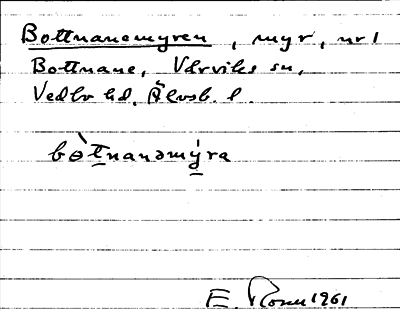 Bottnanemyren, myr, nr 1
Bottnane, Vårviks sn,
Vedbo hd, Älvsb. l.
bòt̲nanəmý̲ra
E. 1961